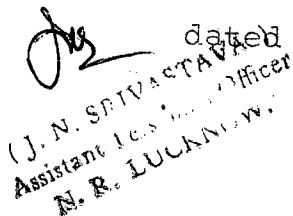 dated
(J. N. SRIVASTAVA)
Assistant Officer
N. R. LUCKNOW.